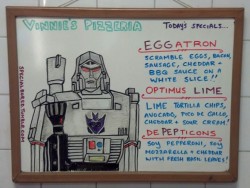 VINNIE'S PIZZERIA
TODAYS SPECIALS...
EGGATRON
SCRAMBLE EGGS, BACON,
SAUSAGE, CHEDDAR +
BBQ SAUCE ON A
WHITE SLICE!!
OPTIMUS LIME
LIME TORTILLA CHIPS,
AVOCADO, PICO DE GALLO,
CHEDDAR + SOUR CREAM!
DEPEPTICONS
SOY PEPPERONI, SOY
MOZZARELLA + CHEDDAR
WITH FRESH BASIL LEAVES!
SPECIALBOARD.TUMBLR.COM